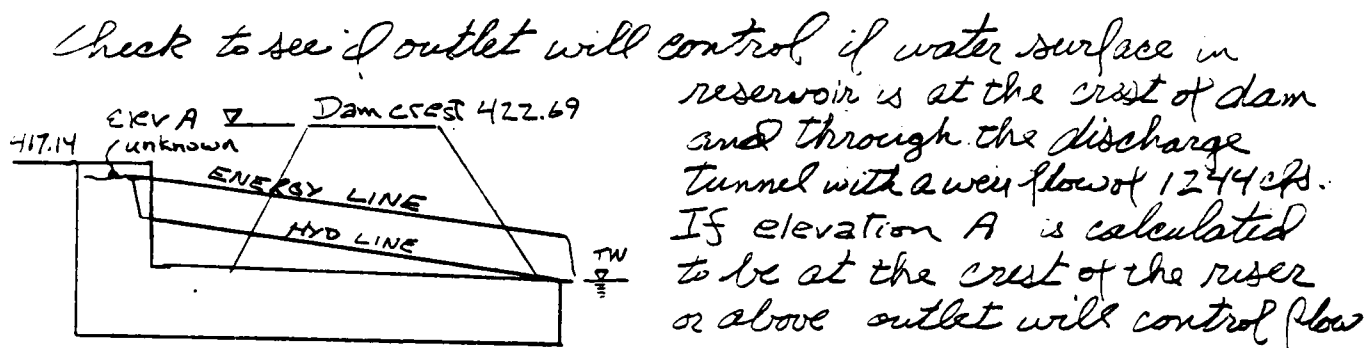 Check to see if outlet will control if water surface in
reservoir is at the crest of dam
and through the discharge
tunnel with a weir flow of 1244 cfs.
If elevation A is calculated
to be at the crest of the riser
or above outlet will control flow
Elev A
unknown
Dam crest 422.69
417.14
ENERGY LINE
HYD LINE
TW